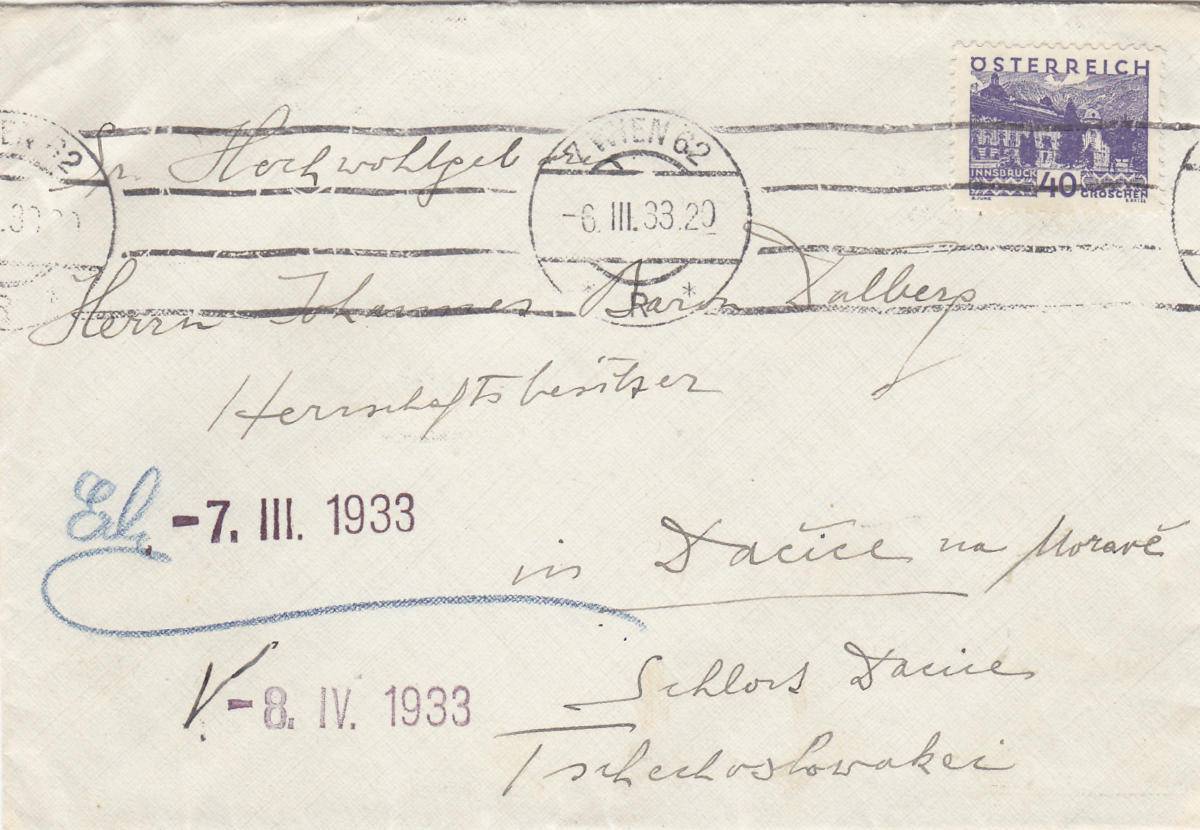 ÖSTERREICH
INNSBRUCK 40 GROSCHEN
WIEN 62
WIEN 62
-6. III. 33.20
* R *
Sr. Hochwohlgeboren
Herrn Johannes Baron Dalberg
Herrschaftsbesitzer
Erh. -7. III. 1933
in Dačice na Moravě
V. -8. IV. 1933
Schloss Dačice
Tschechoslowakei